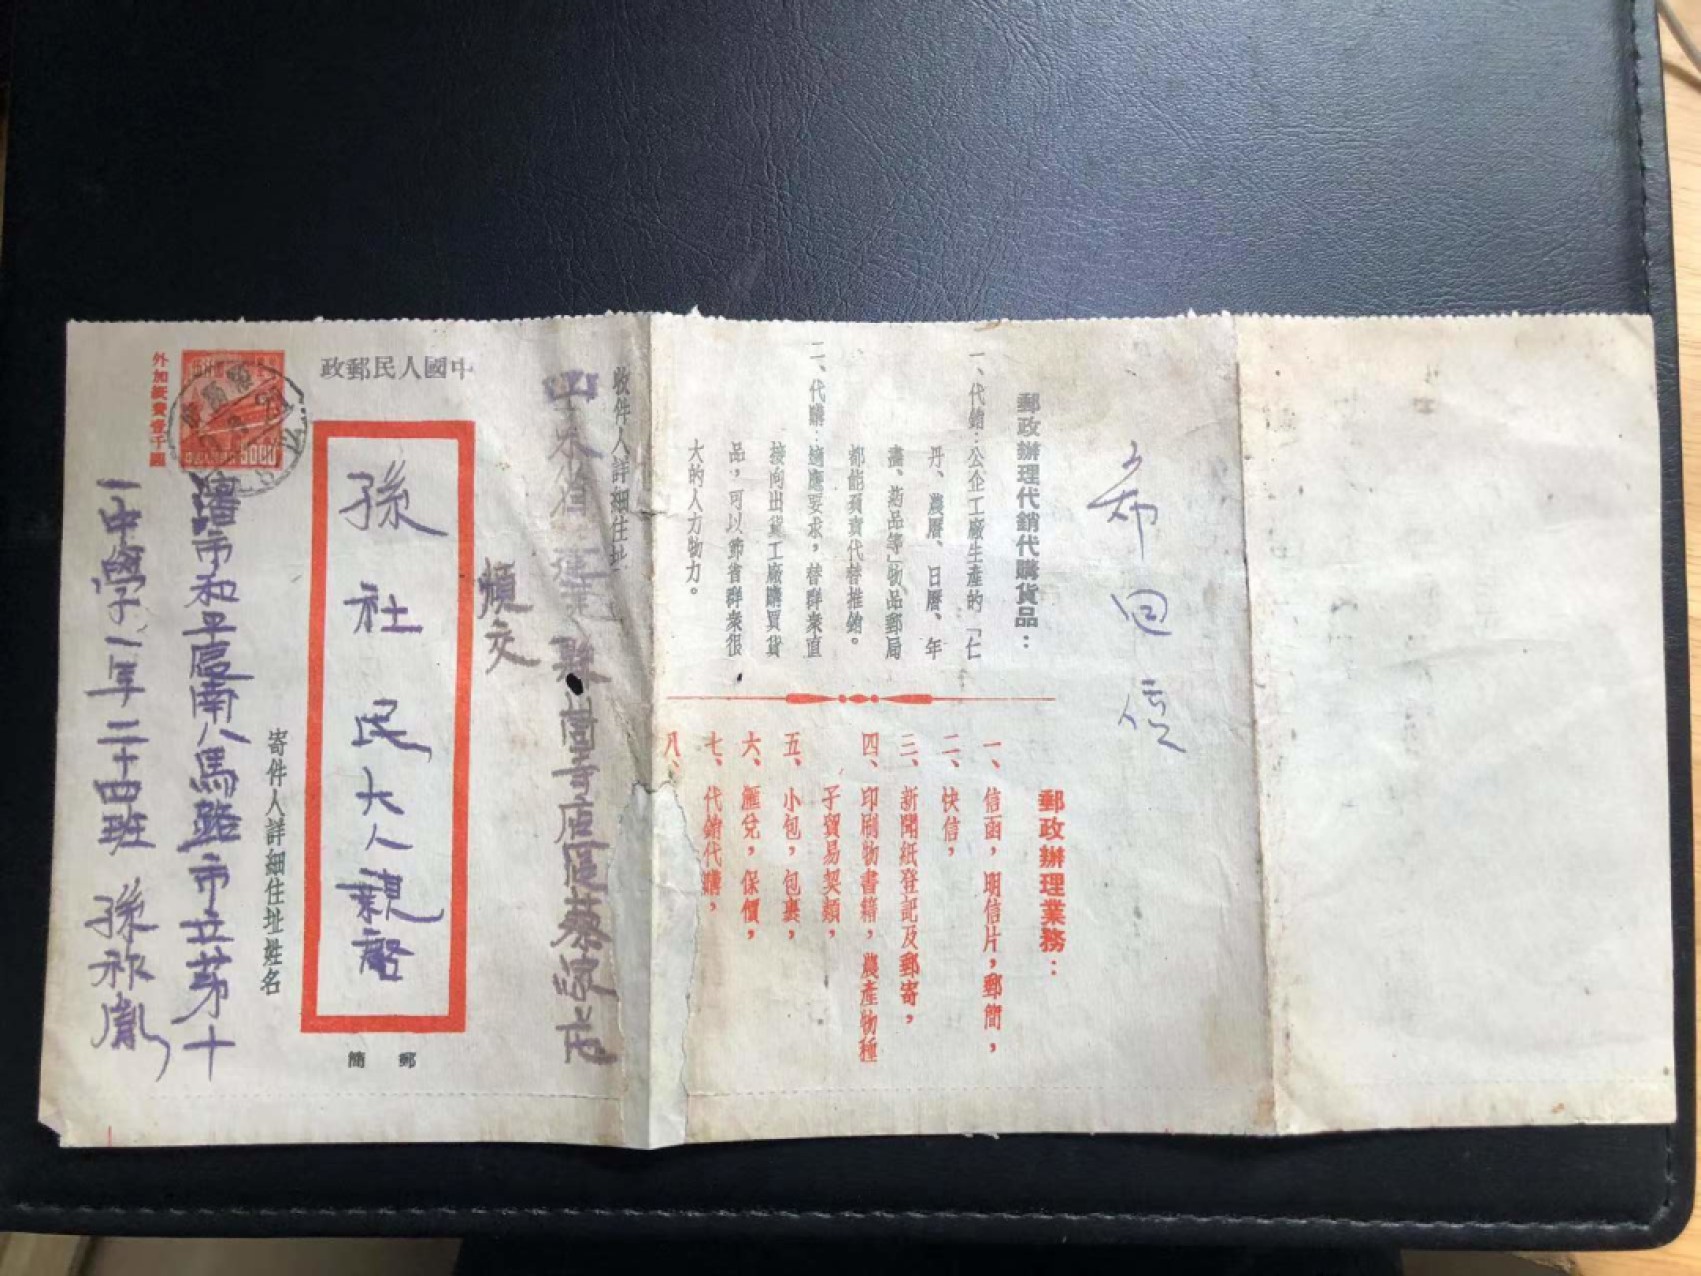 希回信
郵政辦理代銷代購貨品：
一、代銷：公企工廠生產的「仁
丹、農曆、日曆、年
畫、葯品等」物品郵局
都能負責代替推銷。
二、代購：適應要求，替群衆直
接向出貨工廠購買貨
品，可以節省群衆很
大的人力物力。
郵政辦理業務：
一、信函，明信片，郵簡，
二、快信，
三、新聞紙登記及郵寄，
四、印刷物書籍，農產物種
子貿易契類，
五、小包，包裹，
六、匯兌，保價，
七、代銷代購，
八、
收件人詳細住址
山東省 縣 寺店區蔡家莊
煩交
中國人民郵政
孫社民大人親啓
郵簡
寄件人詳細住址姓名
瀋市和平區南八馬路市立第十
一中學一年二十四班 孫
外加紙費壹千圓
5000